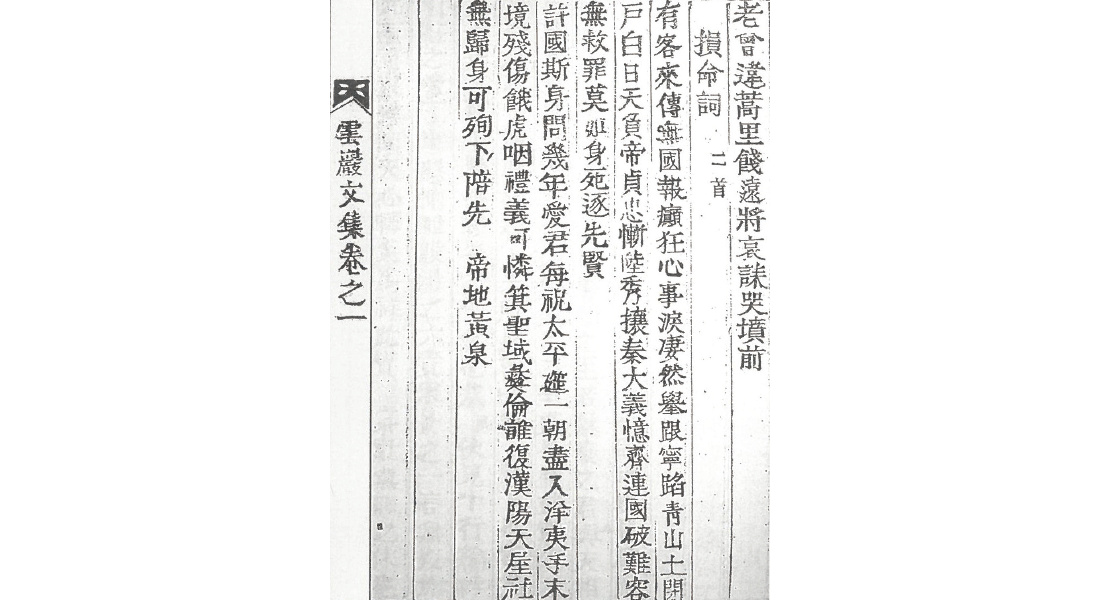 老曾違蒿里餞遠將哀誄哭墳前
損命詞 二首
有客來傳無國報癲狂心事淚凄然擧眼寧踏靑山土閉
戶白日天負帝貞忠慚陸秀攘秦大義憶齊連國破難容
無救罪莫如身死逐先賢
許國斯身問幾年愛君每祝太平筵一朝盡入洋夷手末
境殘傷餓虎咽禮義可憐箕聖域彛倫誰復漢陽天屋社
無歸身可殉下陪先 帝地黃泉
雲巖文集卷之一